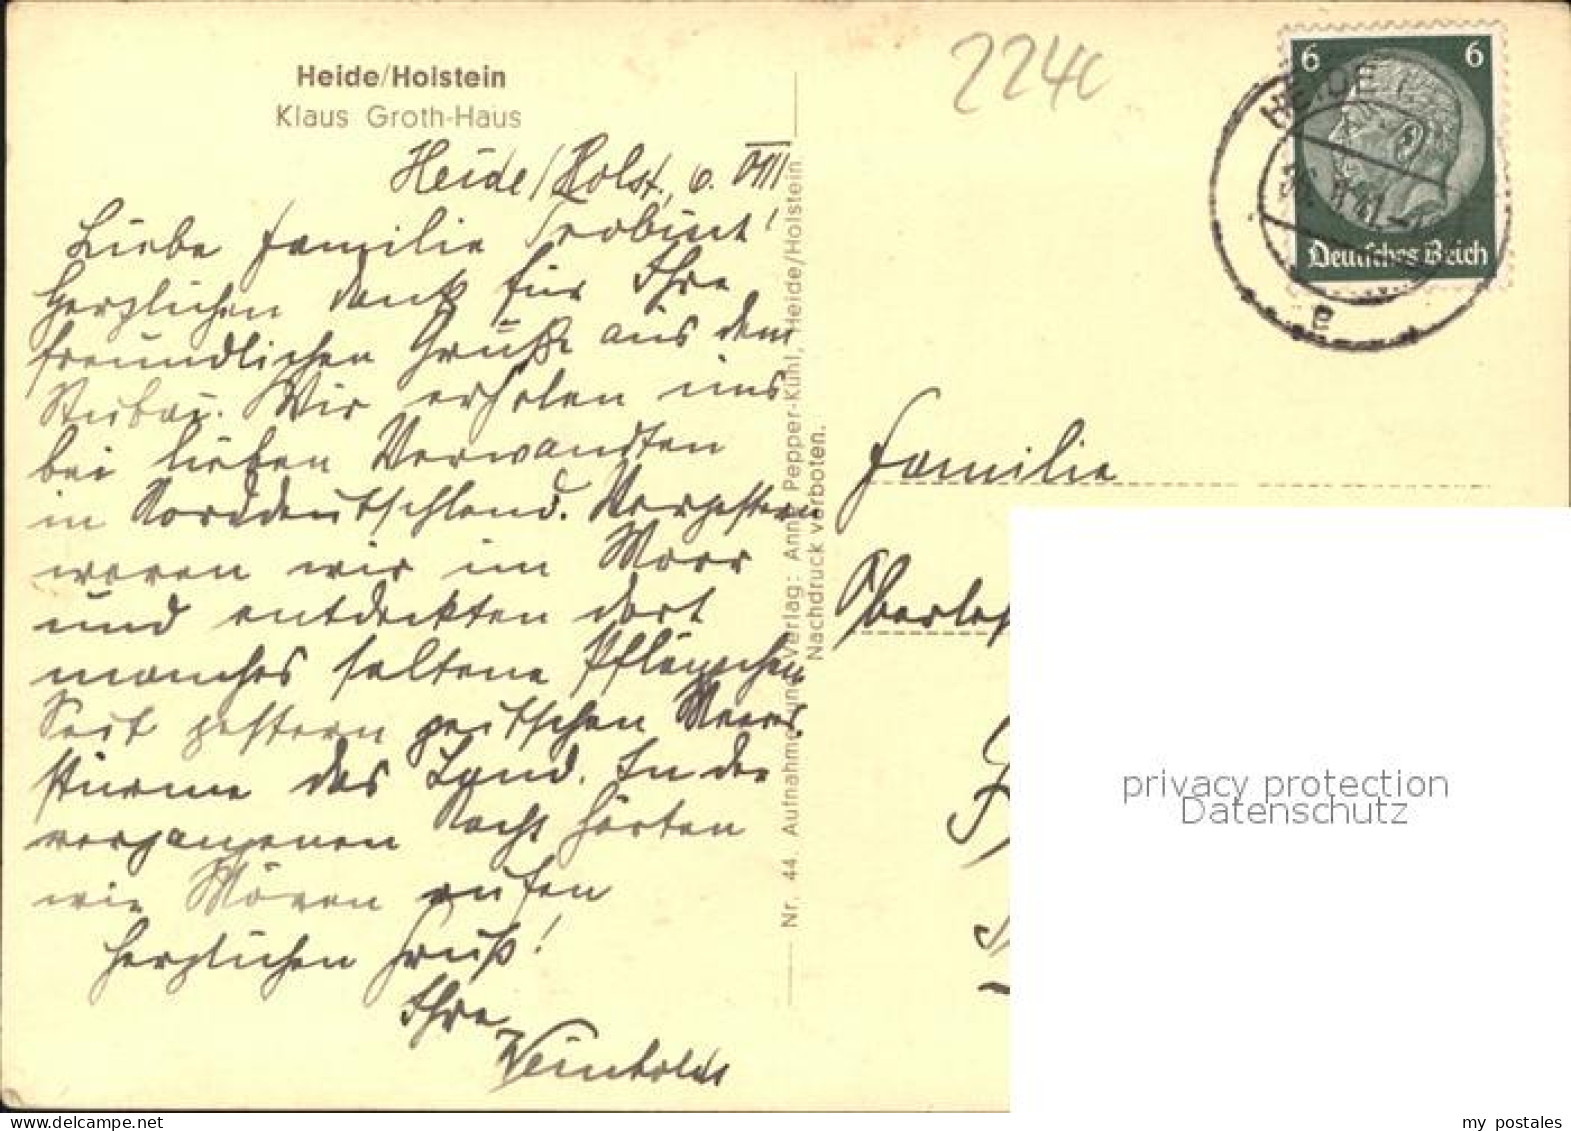 Heide/Holstein
Klaus Groth-Haus
Heide/Holst., 6. VIII
Liebe Familie
Herzlichen Dank für Ihre
freundlichen Grüße aus dem
Stubai. Wir erholen uns
bei lieben Verwandten
in Norddeutschland. Vorgestern
waren wir im Moor
und entdeckten dort
manches seltene Pflänzchen
Seit gestern peitschen Meeres
stürme das Land. In der
vergangenen Nacht hörten
wir Möven rufen
Herzlichen Gruß!
Ihre
Weinholds
Nr. 44. Aufnahme und Verlag: Anna Pepper-Kühl, Heide/Holstein
Nachdruck verboten.
224c
6 6
Deutsches Reich
HEIDE
Familie
privacy protection
Datenschutz
www.delcampe.net
my_postales